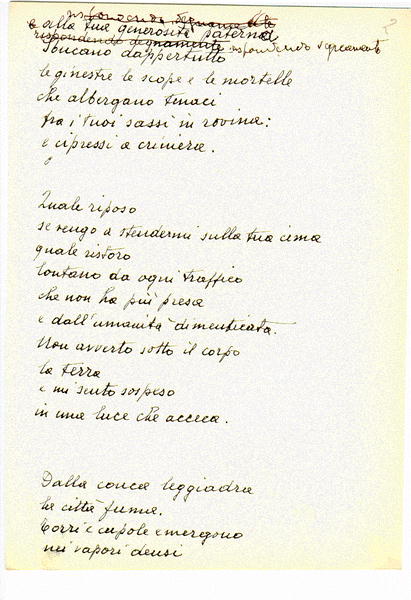 rispondendo degnamente
e alla tua generosità paterna
rispondendo degnamente rispondendo degnamente ?
Sbucano dappertutto
le ginestre le scope e le mortelle
che albergano tenaci
fra i tuoi sassi in rovina:
e cipressi a criniera.
Quale riposo
se vengo a stendermi sulla tua cima
quale ristoro
lontano da ogni traffico
che non ha più presa
e dall'umanità dimenticata.
Non avverto sotto il corpo
la terra
e mi sento sospeso
in una luce che acceca.
Dalla conca leggiadra
la città fuma.
Torri e cupole emergono
nei vapori densi